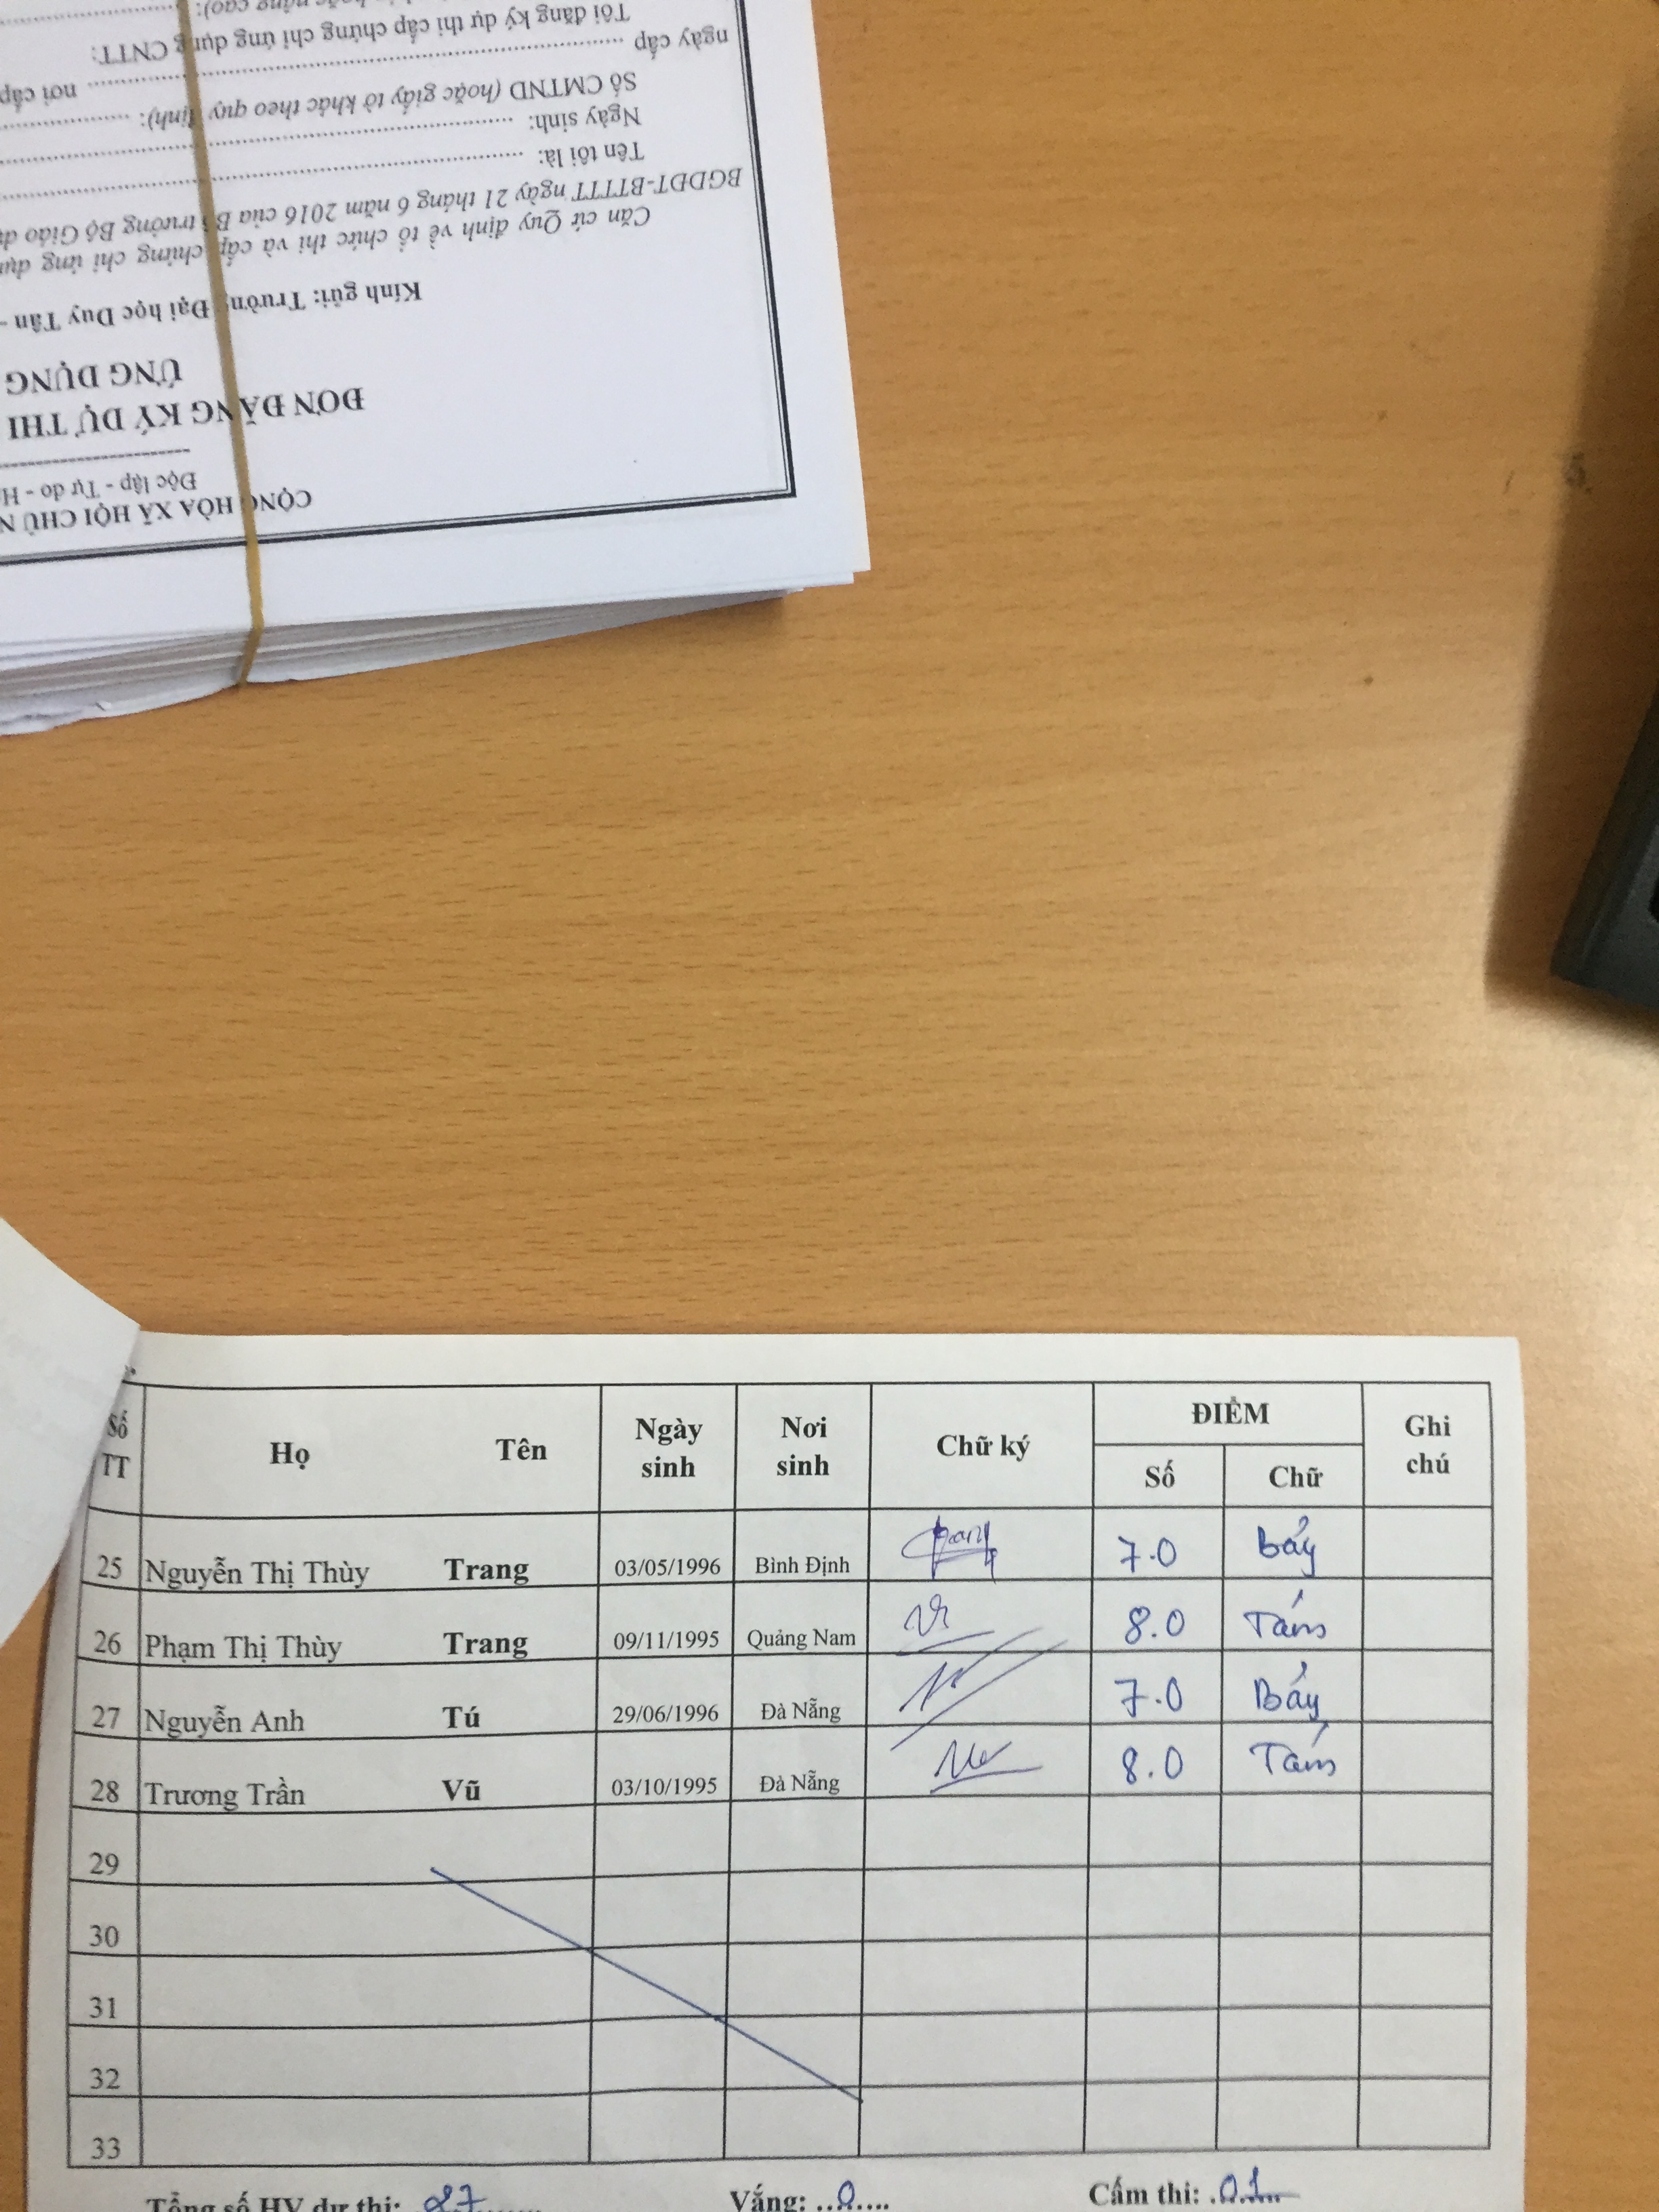 CỘNG HÒA XÃ HỘI CHỦ N
Độc lập - Tự do - H
ĐƠN ĐĂNG KÝ DỰ THI
ỨNG DỤNG
Kính gửi: Trường Đại học Duy Tân -
Căn cứ Quy định về tổ chức thi và cấp chứng chỉ ứng dụn
BGDĐT-BTTTT ngày 21 tháng 6 năm 2016 của Bộ trưởng Bộ Giáo dụ
Tên tôi là:
Ngày sinh:
Số CMTND (hoặc giấy tờ khác theo quy định):
ngày cấp nơi cấp
Tôi đăng ký dự thi cấp chứng chỉ ứng dụng CNTT:
hoặc nâng cao):
Số TT Họ Tên Ngày sinh Nơi sinh Chữ ký ĐIỂM Ghi chú
Số Chữ
25 Nguyễn Thị Thùy Trang 03/05/1996 Bình Định 7.0 Bảy
26 Phạm Thị Thùy Trang 09/11/1995 Quảng Nam 8.0 Tám
27 Nguyễn Anh Tú 29/06/1996 Đà Nẵng 7.0 Bảy
28 Trương Trần Vũ 03/10/1995 Đà Nẵng 8.0 Tám
29
30
31
32
33
Tổng số HV dự thi: 27 Vắng: 0 Cấm thi: 01